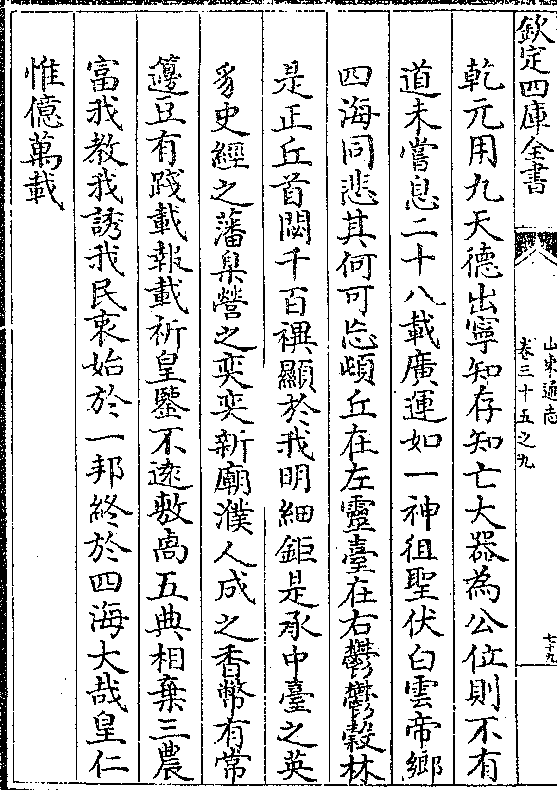 欽定四庫全書
山東通志
卷三十五之九
七十九
乾元用九天德出寧知存知亡大器為公位則不有
道未嘗息二十八載廣運如一神徂聖伏白雲帝鄉
四海同悲其何可忘頓丘在左靈臺在右鬱鬱穀林
是正丘首閟千百禩顯於我明細鉅是承中臺之英
豸史經之藩臬營之奕奕新廟濮人成之香幣有常
籩豆有踐載報載祈皇鑒不遠敷卨五典相棄三農
富我教我誘我民衷始於一邦終於四海大哉皇仁
惟億萬載